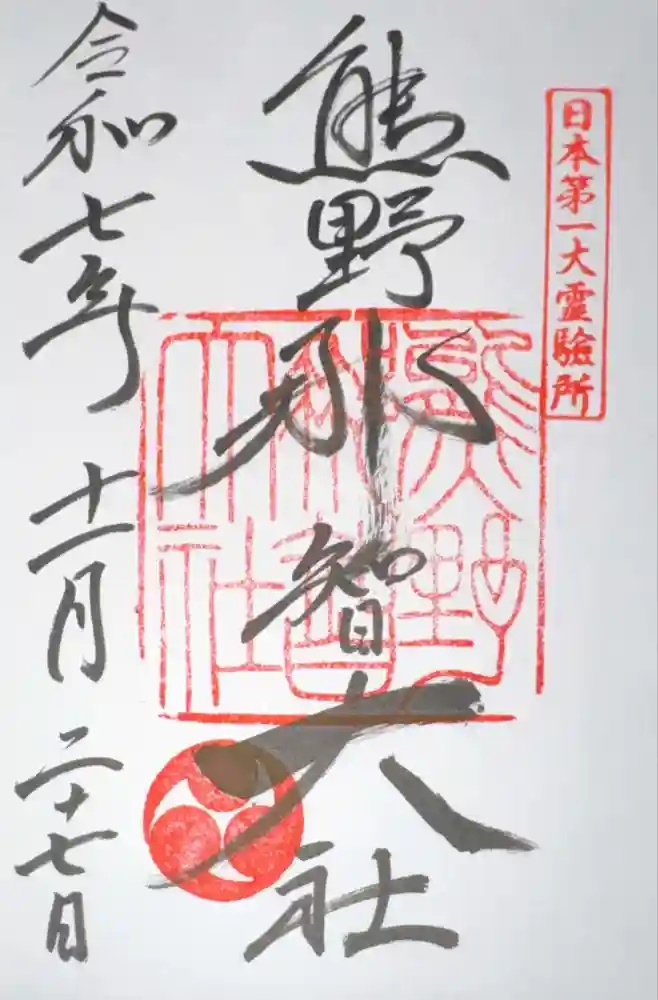 日本第一大霊驗所
熊野那智大社
熊野
那智
大社
令和七年 十一月 二十七日